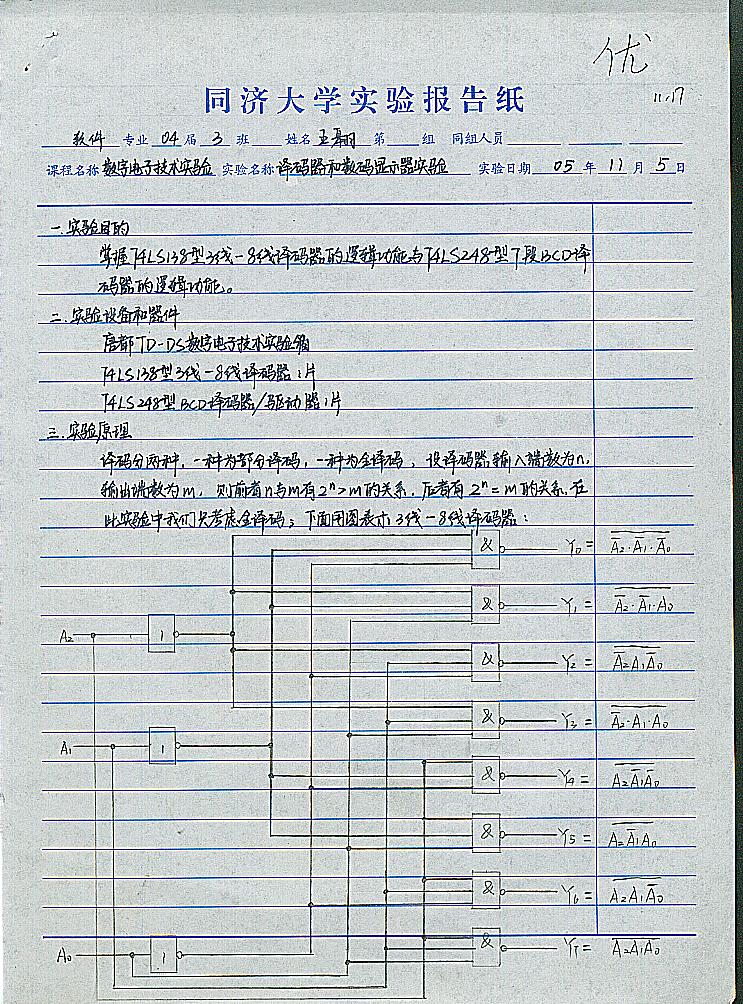 优
同济大学实验报告纸
11.17
软件 专业 04 届 3 班 姓名 王 翮 第 组 同组人员
课程名称 数字电子技术实验 实验名称 译码器和数码显示器实验 实验日期 05 年 11 月 5 日
一.实验目的
掌握74LS138型3线-8线译码器的逻辑功能与74LS248型7段BCD译
码器的逻辑功能。
二.实验设备和器件
唐都TD-DS数字电子技术实验箱
74LS138型3线-8线译码器1片
74LS248型BCD译码器/驱动器1片
三.实验原理
译码分两种,一种为部分译码,一种为全译码,设译码器输入端数为n,
输出端数为m,则前者n与m有2ⁿ>m的关系,后者有2ⁿ=m的关系.在
此实验中我们只考虑全译码,下面用图表示3线-8线译码器:
& Y₀ = \overline{\overline{A₂}·\overline{A₁}·\overline{A₀}}
& Y₁ = \overline{\overline{A₂}·\overline{A₁}·A₀}
A₂ 1
& Y₂ = \overline{\overline{A₂}A₁\overline{A₀}}
& Y₃ = \overline{\overline{A₂}·A₁·A₀}
A₁ 1
& Y₄ = \overline{A₂\overline{A₁}\overline{A₀}}
& Y₅ = \overline{A₂\overline{A₁}A₀}
& Y₆ = \overline{A₂A₁\overline{A₀}}
A₀ 1
& Y₇ = \overline{A₂A₁A₀}